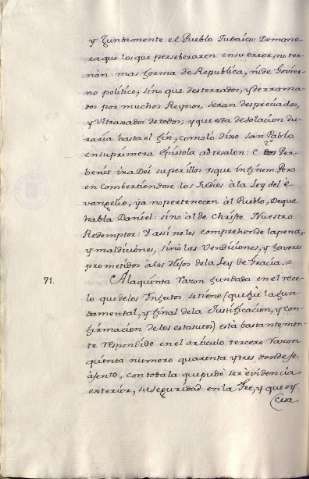 y Juntamente el Pueblo Judaico Demane
ra que los que perseberaren en su error, no ter
nán mas forma de Republica, ni de Govier
no politico, sino que desterrados, y derrama
dos por muchos Reynos, seran despreciados,
y Ultraxados de todos, y que esta desolacion du
raria hasta el fin, como lo dixo san Pablo
en su primera Epistola ad tesalon: C
benit ira Dei super illos usque in finem. Pero
en combirtiendose los Judios à la Ley del e
vangelio, ya no pertenecen al Pueblo, De que
habla Daniel: sino al de Christo Nuestro
Redemptor: Y asi no les comprehende la pena,
y maldiciones, sino las Vendiciones, y favores
prometidos à los Hijos de la Ley de Gracia.
71. A la quinta Razon fundada en el rece
lo que de los Sujetos se tiene (que fue la fun
damental, y final de la Justificacion, y con
firmacion de los estatutos) está bastantemente
respondido en el articulo tercero Razon
quinta numero quarenta y tres donde se
asento, con toda la que pudo ser evidencia
exterior, su seguridad en la Fee, y que oy